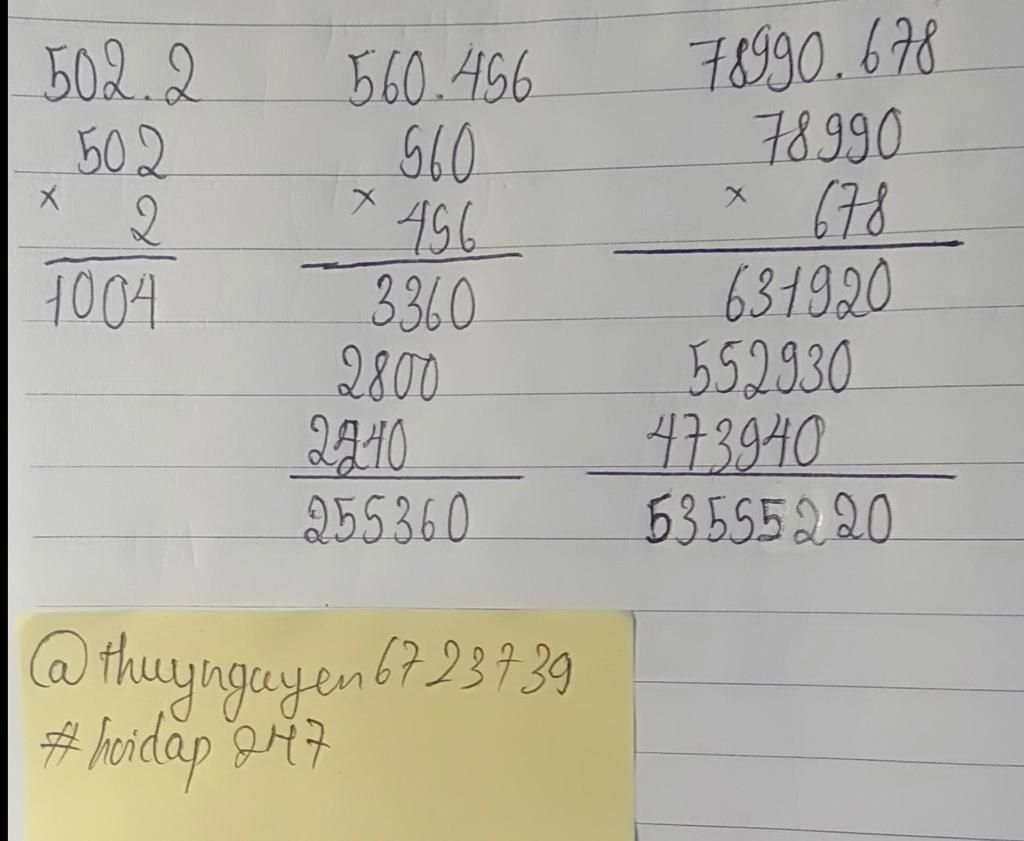 502.2
502
× 2
1004
560.456
560
× 456
3360
2800
2240
255360
78990.678
78990
× 678
631920
552930
473940
53555220
@thuynguyen6723739
#hoidap 247